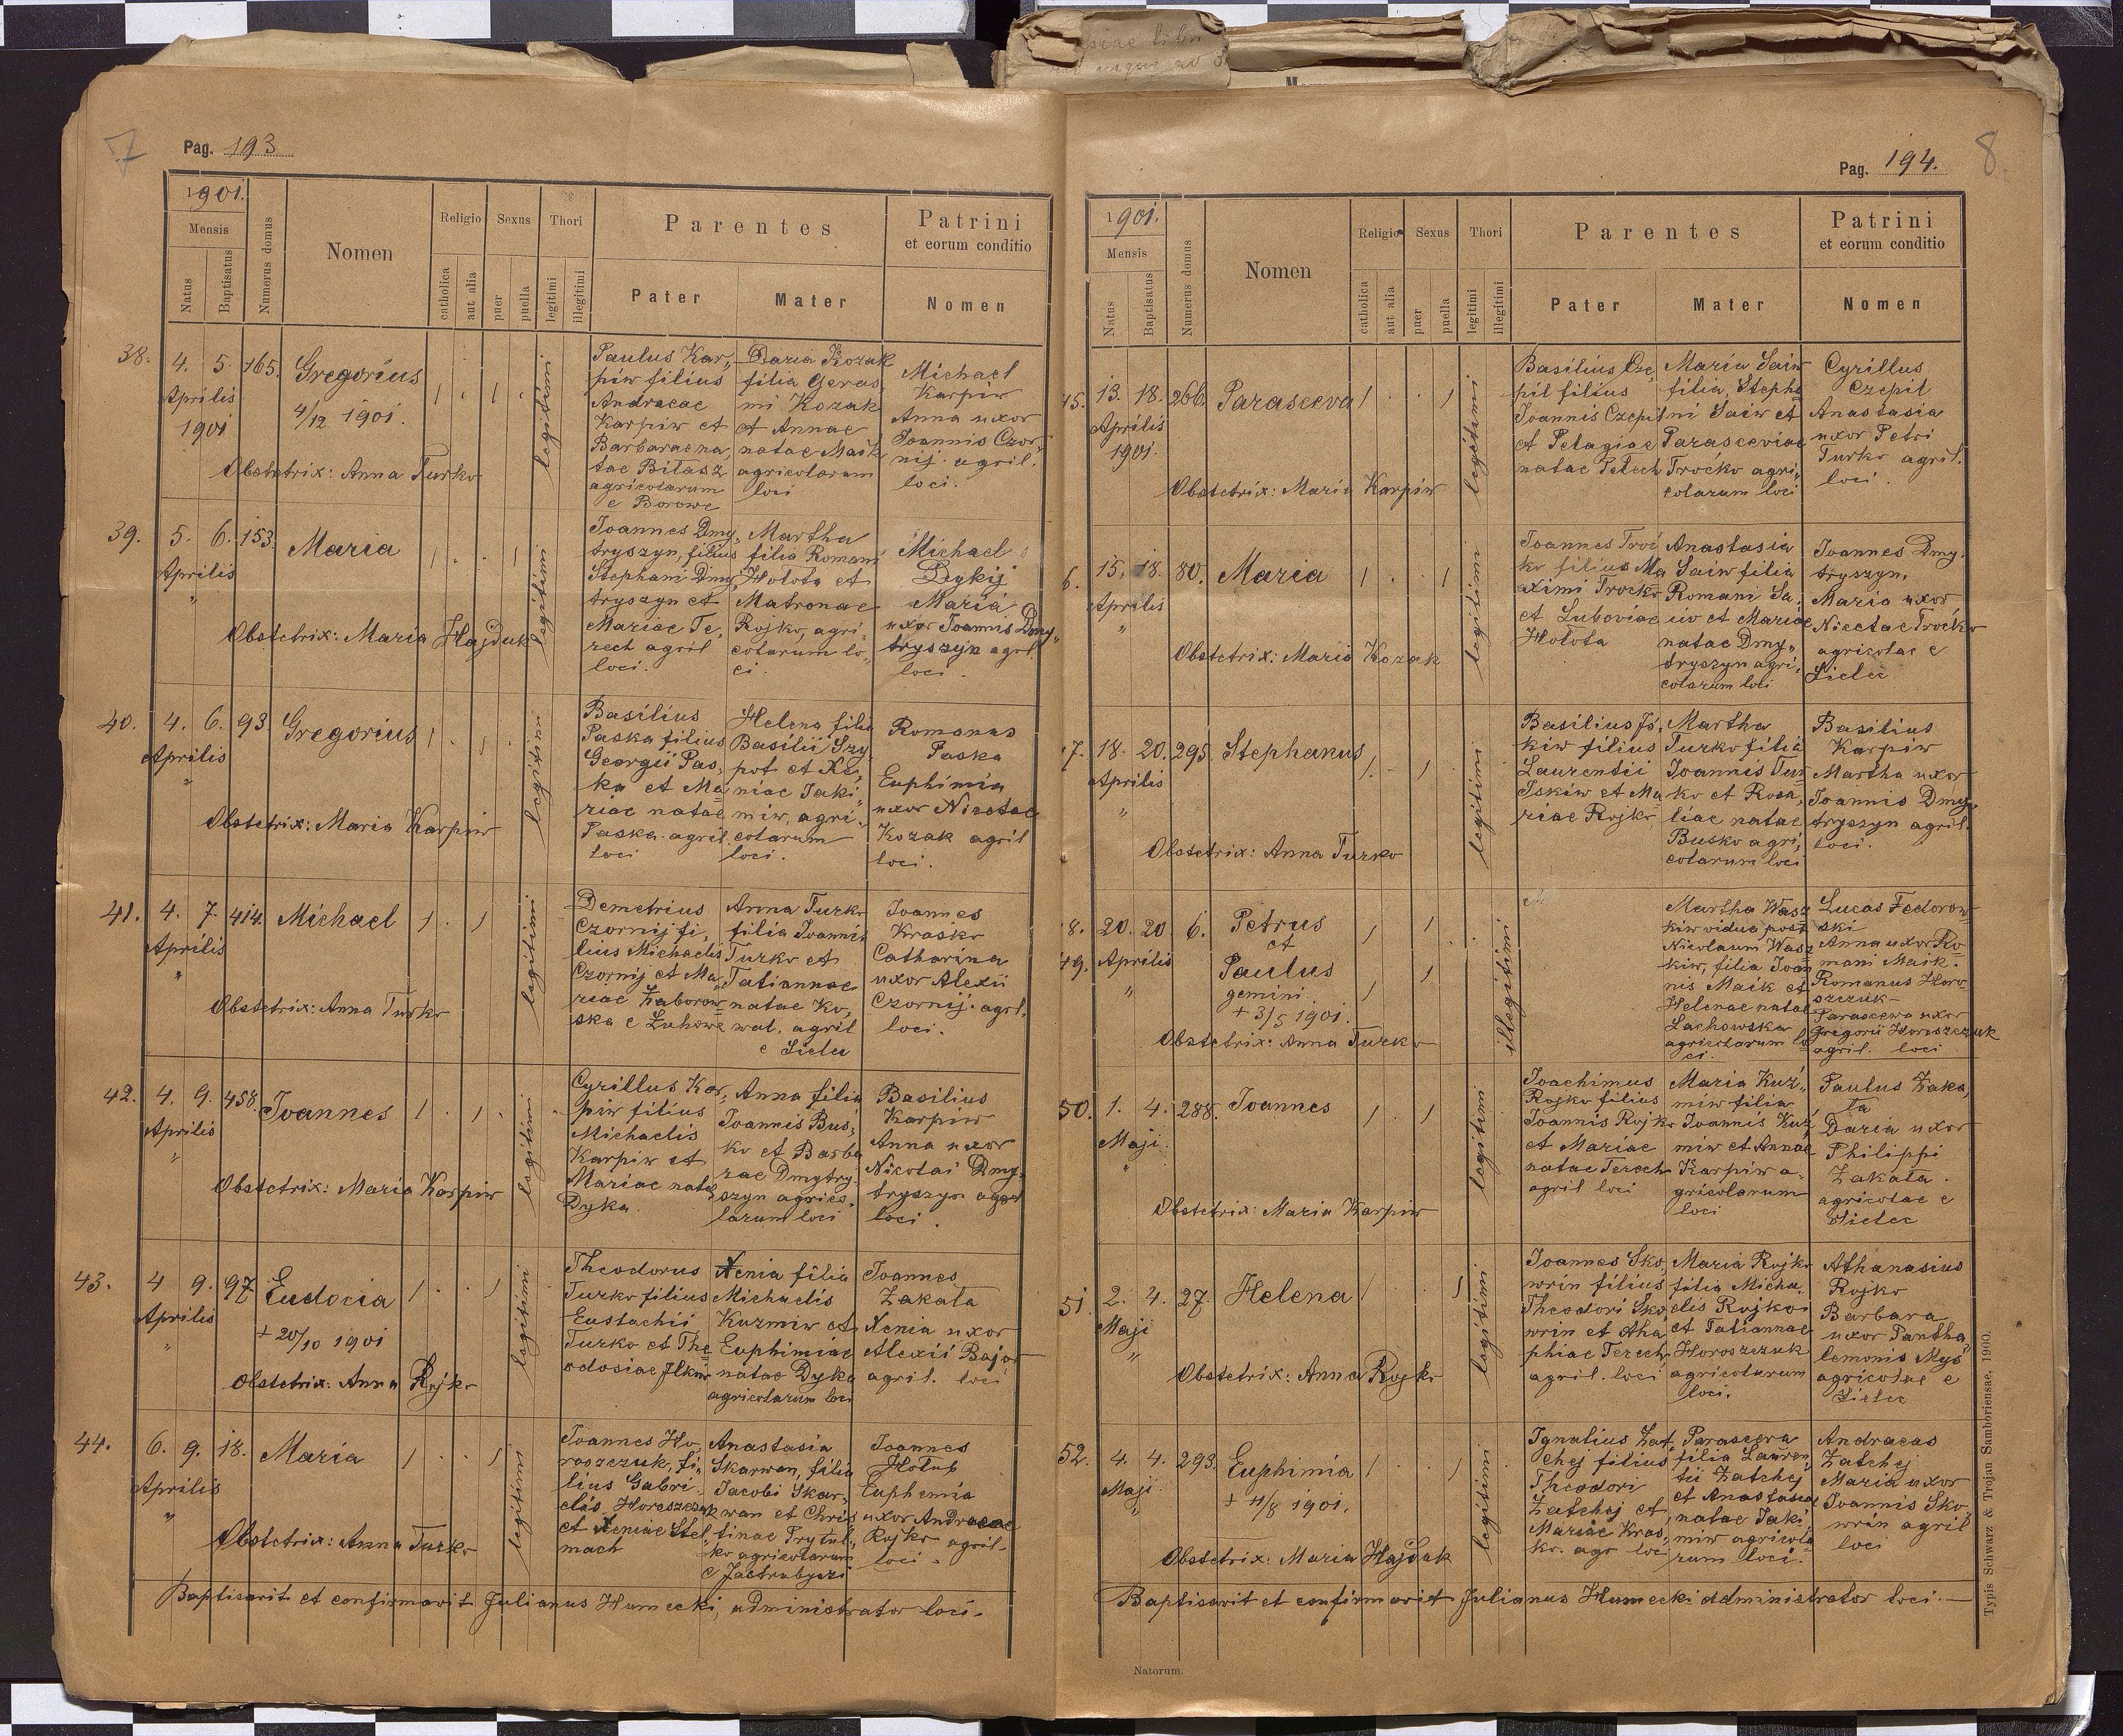 7
Pag. 193
1901.
Mensis
Natus
Baptisatus
Numerus domus
Nomen
Religio
catholica
aut alia
Sexus
puer
puella
Thori
legitimi
illegitimi
Parentes
Pater
Mater
Patrini
et eorum conditio
Nomen
38.
4. 5. 165. Gregorius
Aprilis
1901
4/12 1901.
Obstetrix: Anna Turko
legitimi
Paulus Kar„
piw filius
Andraeae
Karpiw et
Barbarae na„
tae Bitasz
agricolarum
e Borowe
Daria Kozak
filia Geras
mi Kozak
et Annae
natae Maik
agricolarum
loci
Michael
Karpiw
Anna uxor
Joannis Czor„
nij. agril.
loci.
39.
5. 6. 153. Maria
Aprilis
"
Obstetrix: Maria Hajduk
legitimi
Joannes Dmy„
tryszyn, filius
Stephani Dmy„
tryszyn et
Mariae Te„
rech agril
loci.
Martha
filia Romani
Hołota et
Matronae
Rojko, agri„
colarum lo„
ci.
Michael
Dykij
Maria
uxor Joannis Dmy„
tryszyn agril.
loci.
40.
4. 6. 93. Gregorius
Aprilis
"
Obstetrix: Maria Karpiw
legitimi
Basilius
Paska filius
Georgii Pas„
ka et Ma„
riae natae
Paska. agril.
loci
Helena filia
Basilii Szy
pot et Xe„
niae Jaki„
miw, agri„
colarum
loci.
Romanus
Paska
Euphimia
uxor Nicetae
Kozak agril
loci.
41.
4. 7. 414. Michael
Aprilis
"
Obstetrix: Anna Turko
legitimi
Demetrius
Czornij fi„
lius Michaelis
Czornij et Ma„
riae Zaborow
ska e Luhowe
Anna Turko
filia Joannis
Turko et
Tatiannae
natae Ko„
wal, agril
e Sielec
Joannes
Krasko
Catharina
uxor Alexii
Czornij. agrl.
loci.
42.
4. 9. 458. Joannes
Aprilis
"
Obstetrix: Maria Karpiw
legitimi
Cyrillus Kar„
piw filius
Michaelis
Karpiw et
Mariae natae
Dyka
Anna filia
Joannis Bus„
ko et Barba
rae Dmytry„
szyn agrico„
larum loci
Basilius
Karpiw
Anna uxor
Nicolai Dmy„
tryszyn agril
loci.
43.
4 9. 97 Eudocia
Aprilis
"
+ 20/10 1901
Obstetrix: Anna Rojko
legitimi
Theodorus
Turko filius
Eustachii
Turko et The„
odosiae Ilkow
Xenia filia
Michaelis
Kuzmiw et
Euphimiae
natae Dyka
agricolarum loci
Joannes
Zakała
Xenia uxor
Alexii Bajor
agril. loci
44.
6. 9. 18. Maria
Aprilis
"
Obstetrix: Anna Turko
legitimi
Joannes Ho„
roszczuk, fi„
lius Gabri„
elis Horoszczuk
et Xeniae Stel„
mach
Anastasia
Skarwan, filia
Jacobi Skar„
wan et Chris
tinae Prytul„
ko agricolarum
e Jastrubyczi
Joannes
Hołub
Euphemia
uxor Andraeae
Rojko agril.
loci.
Baptisavit et confirmavit Julianus Humecki, administrator loci.
Pag. 194.
8
1901.
Mensis
Natus
Baptisatus
Numerus domus
Nomen
Religio
catholica
aut alia
Sexus
puer
puella
Thori
legitimi
illegitimi
Parentes
Pater
Mater
Patrini
et eorum conditio
Nomen
45.
13. 18. 266. Parasceva
Aprilis
1901.
Obstetrix: Maria Karpiw
legitimi
Basilius Cze„
pil filius
Joannis Czepil
et Pelagiae
natae Pelech
Maria Saiw
filia, Stepha
ni Saiw et
Parasceviae
Troćko agri„
colarum loci
Cyrillus
Czepil
Anastasia
uxor Petri
Turko agril.
loci.
6.
15. 18. 80. Maria
Aprilis
"
Obstetrix: Maria Kozak
legitimi
Joannes Troć
ko filius Ma
ximi Troćko
et Luboviae
Hołota
Anastasia
Saiw filia
Romani Sa„
iiw et Mariae
natae Dmy„
tryszyn agri„
colarum loci
Joannes Dmy„
tryszyn.
Maria uxor
Nicetae Troćko
agricolae e
Sielec
7.
18. 20. 295. Stephanus
Aprilis
"
Obstetrix: Anna Turko
legitimi
Basilius Jś„
kiw filius
Laurentii
Iskiw et Ma
riae Rojko
Martha
Turko filia
Joannis Tur
ko et Rosa„
liae natae
Busko agri„
colarum loci
Basilius
Karpiw
Martha uxor
Joannis Dmy„
tryszyn agril.
loci.
8.
49.
20. 20. 6. Petrus
Aprilis
"
et
Paulus
gemini.
+ 3/5 1901.
Obstetrix: Anna Turko
illegitimi
Martha Wasz
kiw vidua post
Nicolaum Wasz
kiw, filia Joan
nis Maik et
Helenae natae
Lachowska
agricolarum lo
ci.
Lucas Fedorow
ski
Anna uxor Ro
mani Maik.
Romanus Horo„
szczuk-
Parascewa uxor
Gregorii Horoszczuk
agril. loci
50.
1. 4. 288. Joannes
Maji
"
Obstetrix: Maria Karpiw
legitimi
Joachimus
Rojko filius
Joannis Rojko
et Mariae
natae Terech
agril loci
Maria Kuź„
miw filia
Joannis Kuź
miw et Annae
Karpiw a„
gricolarum
loci
Paulus Zaka„
ła
Daria uxor
Philippi
Zakała.
agricolae e
Sielec
51.
2. 4. 27. Helena
Maji
"
Obstetrix: Anna Rojko
legitimi
Joannes Sko„
wrin filius
Theodori Sko„
wrin et Aha„
phiae Terech
agril. loci
Maria Rojko
filia Micha„
elis Rojko
et Tatiannae
Horoszczuk
agricolarum
loci.
Athanasius
Rojko
Barbara
uxor Pantha„
lemonis Mys
agricolae e
Sielec
52.
4. 4. 293. Euphimia
Maji
"
+ 4/8 1901.
Obstetrix: Maria Hajduk
legitimi
Ignatius Zat„
chej filius
Theodori
Zatchej et
Mariae Kras„
ko. agr loci
Parascева
filia Lauren„
tii Zatchej
et Anastasiae
natae Jaki„
miw agricola
rum loci.
Andraeas
Zatchej
Maria uxor
Joannis Sko„
wrin agril
loci
Baptisavit et confirmavit Julianus Humecki administrator loci.—
Natorum.
Typis Schwarz & Trojan Samboriensae, 1900.